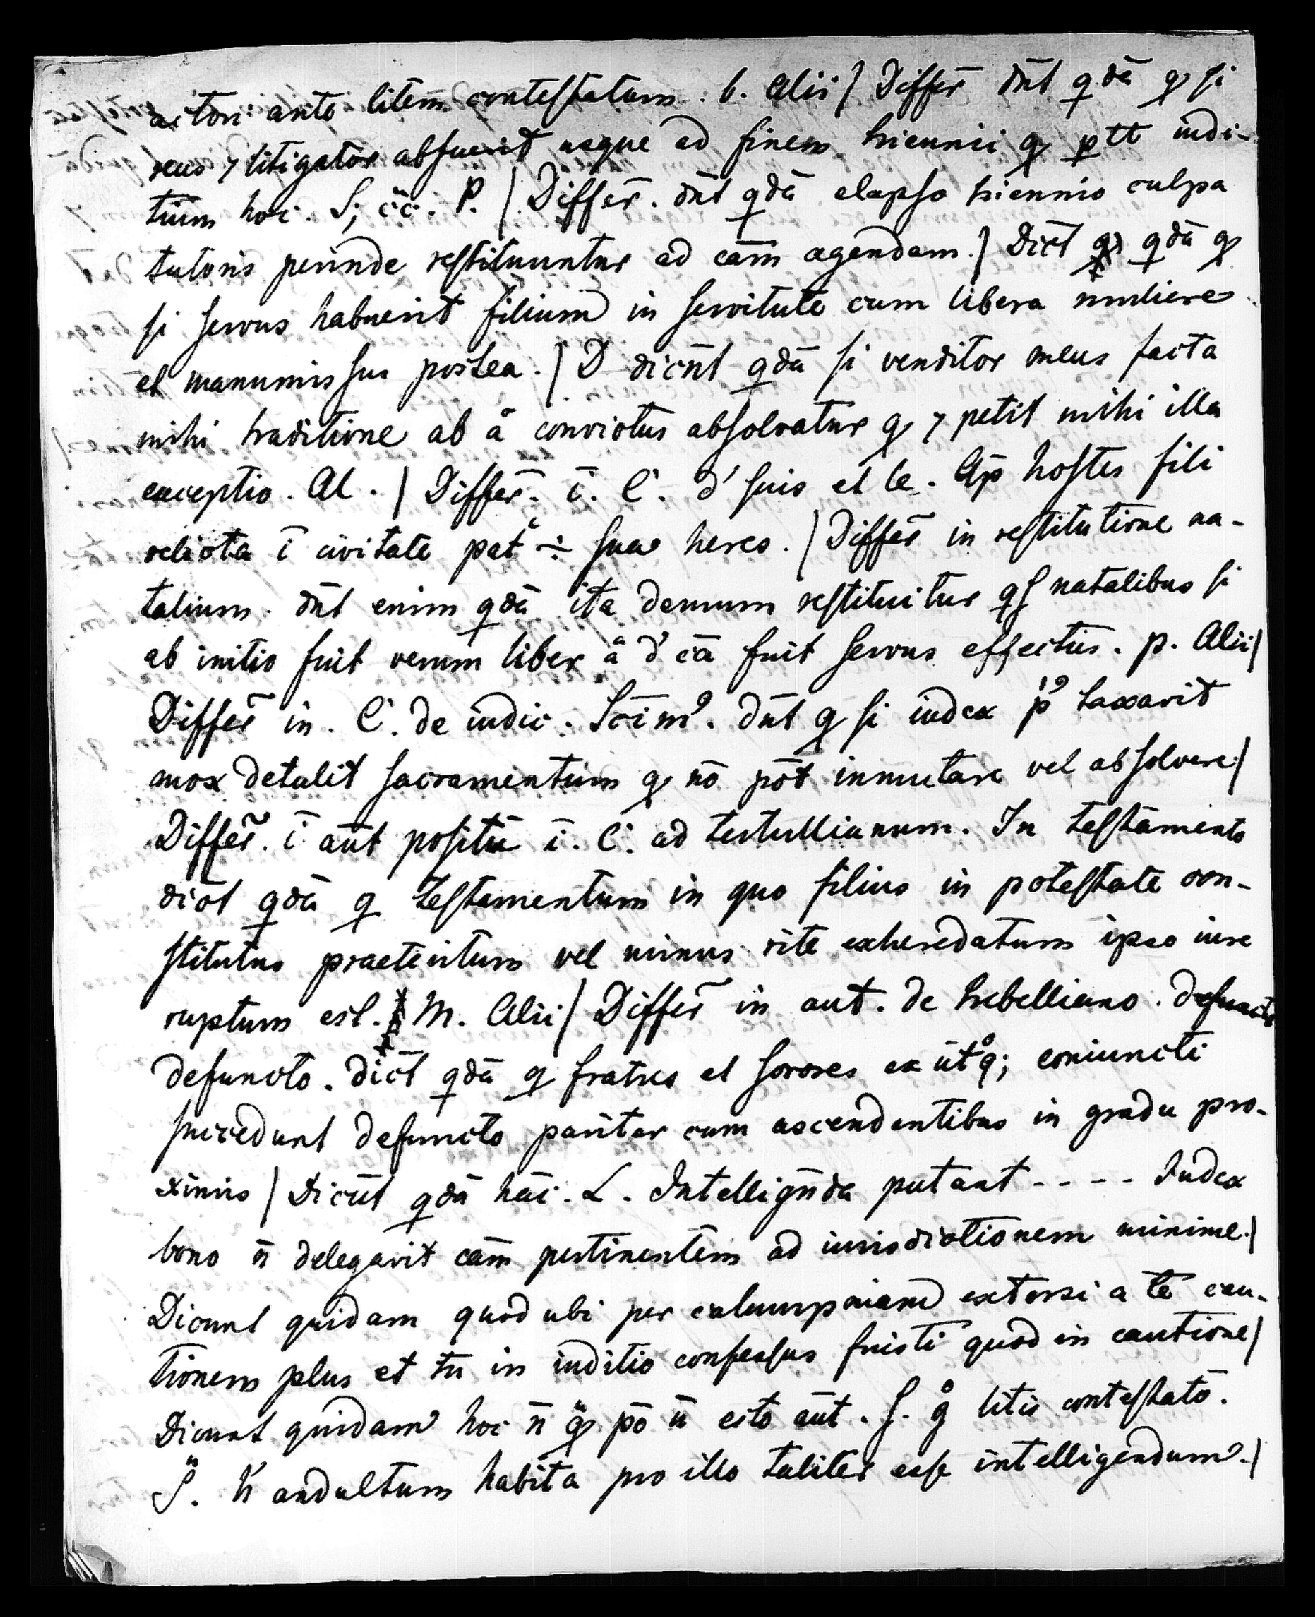 actori ante litem contestatam. b. Alii / Differ̄ dn̄t qdā q si
reus 7 litigator absuerit usque ad finem triennii q ptt iudi-
tium hoc. S; c̈c. P. / Differ̄. dn̄t qdā elapso triennio culpa
tutoris perinde restituuntur ad cām agendam. / Dict̄ qdā q
si servus habuerit filium in servitute cum libera muliere
et manumissus postea. / D dicūt qdā si venditor meus facta
mihi traditione ab å convictus absolvatur q 7 petit mihi illa
exceptio. Al. / Differ̄. ī. C. d' suis et le. Ap̄ hostes fili
relicta ī civitate pat̊ ÷ suus heres. / Differ̄ in restitutione na-
talium. dn̄t enim qdā ita demum restituitur qs natalibus si
ab initio fuit verum liber å d' cā fuit servus effectus. p. Alii /
Differ̄ in. C. de iudic. Scīm⁹. dn̄t q si iudex p⁹ taxavit
mox detulit sacramentum q nō pōt inmutare vel absolvere /
Differ̄. ī aūt positū ī. C. ad tertullianum. In testamento
dict̄ qdā q testamentum in quo filius in potestate con-
stitutus praeteritum vel minus rite exheredatum ipso iure
ruptum est. M. Alii / Differ̄ in aut. de trebelliano. defuncto
defuncto. dict̄ qdā q fratres et sorores ex ūt̊q; coniuncti
succedunt defuncto pariter cum ascendentibus in gradu pro-
ximis / Dicūt qdā hāc. L. Intellign̄da putant - - - - Iudex
bono n̄ delegavit cām pertinentem ad iurisdictionem minime /
Dicunt quidam quod ubi per calumpniam extorsi a te cau-
tionem plus et tu in iuditio confessus fuisti quod in cautione /
Dicunt quidam hoc n̄ q pō n̄ esto aūt. S. g̊ litis contestatō.
S. n' andultum habita pro illo taliter esse intelligendum. /